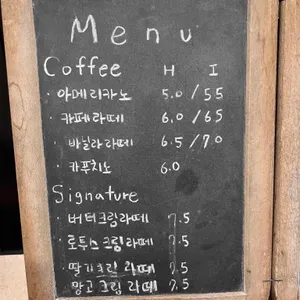 Menu
Coffee H I
· 아메리카노 5.0 / 5.5
· 카페라떼 6.0 / 6.5
· 바닐라라떼 6.5 / 7.0
· 카푸치노 6.0
Signature
· 버터크림라떼 7.5
· 로투스크림라떼 7.5
· 딸기크림 라떼 7.5
· 망고크림 라떼 7.5